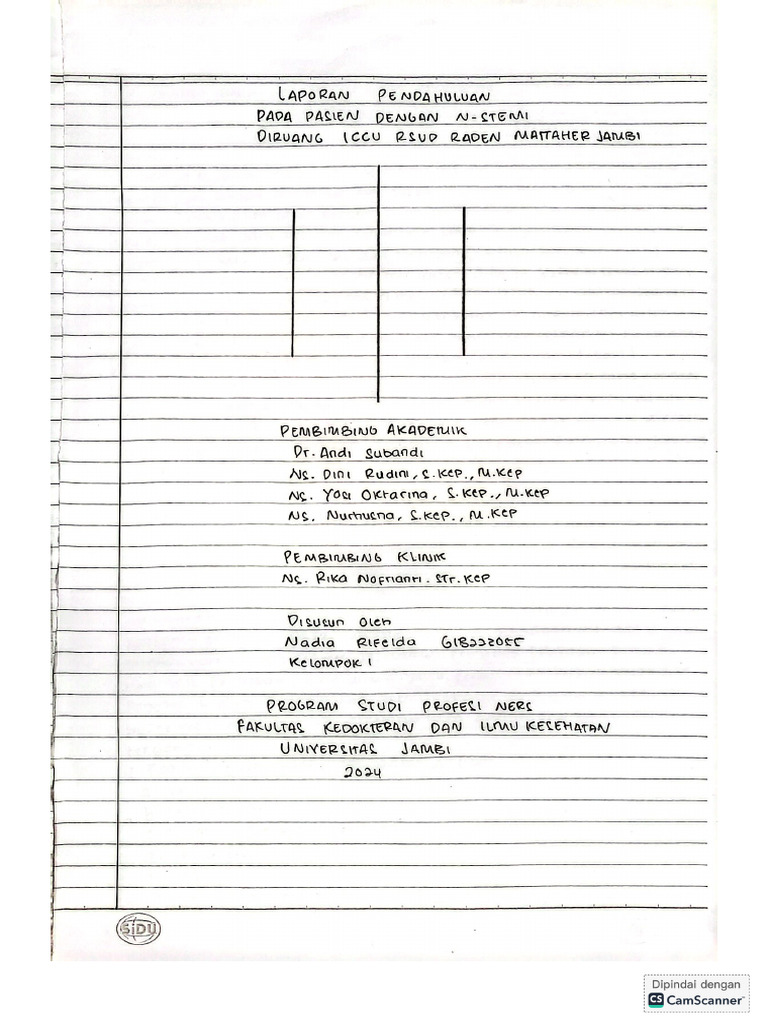 LAPORAN PENDAHULUAN
PADA PASIEN DENGAN N-STEMI
DIRUANG ICCU RSUD RADEN MATTAHER JAMBI
PEMBIMBING AKADEMIK
Dr. Andi Subandi
Ns. Dini Rudini, S.Kep., M.Kep
Ns. Yosi Oktarina, S.Kep., M.Kep
Ns. Nurhusna, S.Kep., M.Kep
PEMBIMBING KLINIK
Ns. Rika Nofrianti. STr.Kep
Disusun Oleh
Nadia Rifelda G1B222055
Kelompok 1
PROGRAM STUDI PROFESI NERS
FAKULTAS KEDOKTERAN DAN ILMU KESEHATAN
UNIVERSITAS JAMBI
2024
SiDU
Dipindai dengan
CS CamScanner